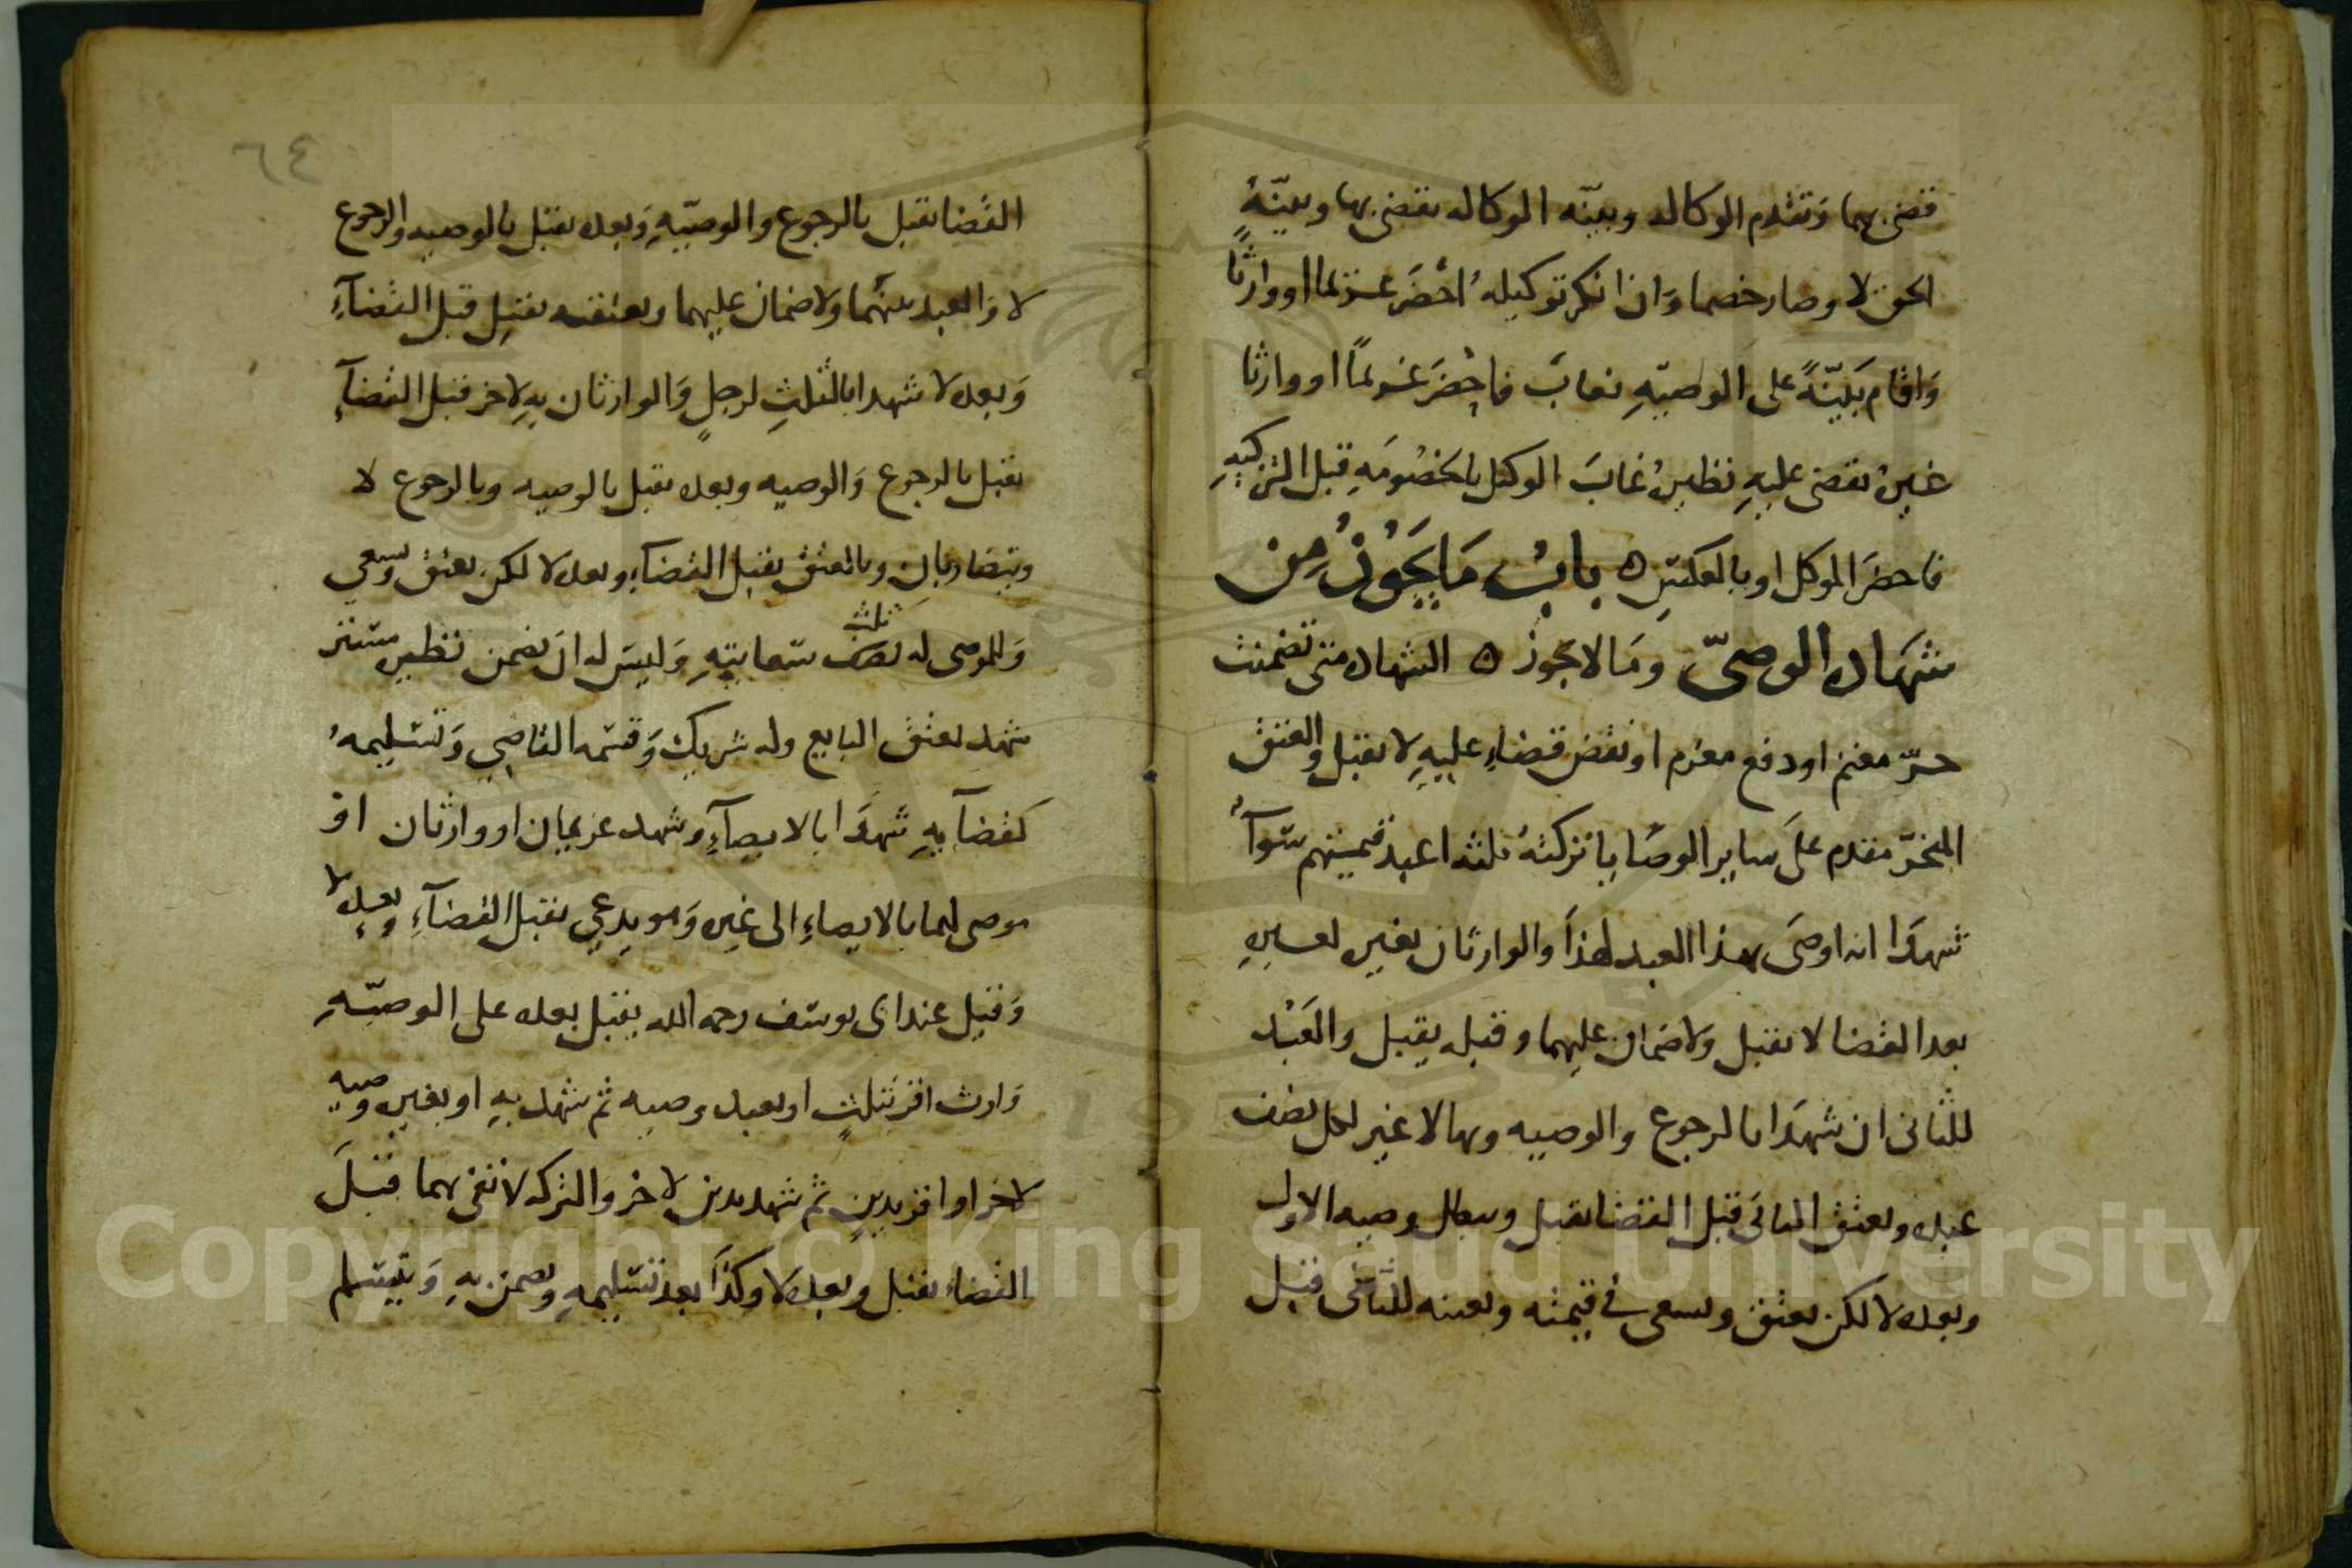 قضى بهما وتقدم الوكاله وبينه الوكاله تقضى بها وبينة
الحق لا وصار خصما وان انكر توكيله احضر غريما او وارثا
واقام بينة على الوصية فغاب فاحضر غريما او وارثا
غيره تقضى عليه نظيره غاب الوكيل بالخصومة قبل التزكية
فاحضر الموكل او بالعكس ه باب ما يجوز من
شهادة الوصى وما لا يجوز ه الشهاده متى تضمنت
جر مغنم او دفع مغرم او نقض قضاء عليه لا تقبل والعتق
المنجز مقدم على ساير الوصايا تركته ثلثه اعبد قيمتهم سواء
شهدا انه اوصى بهذا العبد لهذا والوارثان بغيره لغيره
بعد القضا لا تقبل ولا ضمان عليهما وقبله يقبل والعبد
للثانى ان شهدا بالرجوع والوصيه وبها لا غير لكل نصف
عبده وبعتق الثانى قبل القضا تقبل وبطل وصيه الاول
وبعده لا لكن يعتق ويسعى فى قيمته وبعينه للثانى قبل
٦٤
القضا تقبل بالرجوع والوصية وبعده تقبل بالوصيه والرجوع
لا والعبد بينهما ولا ضمان عليهما وبعتقه تقبل قبل القضاء
وبعده لا شهدا بالثلث لرجل والوارثان به لاخر قبل القضاء
تقبل بالرجوع والوصيه وبعده تقبل بالوصيه وبالرجوع لا
ويتضاربان وبالعتق تقبل القضاء وبعده لا لكن يعتق ويسعى
ثلث
وللموصى له نصف سعايته وليس له ان يضمن نظيره مشتر
شهد بعتق البايع وله شريك وقسمه القاضي وتسليمه
كقضايه شهدا بالايصاء وشهد غريمان او وارثان او
موصى لهما بالايصاء الى غيره وهو يدعي تقبل القضاء وبعده لا
وقيل عند ابى يوسف رحمه الله يقبل بعده على الوصية
وارث اقر بثلث او بعبد وصيه ثم شهد به او بغيره وصيه
لاخر او اقر بدين ثم شهد بدين لاخر والتركه لا تفى بهما قبل
القضاء تقبل وبعده لا وكذا بعد تسليمه ويضمن به وتسلم
Copyright © King Saud University